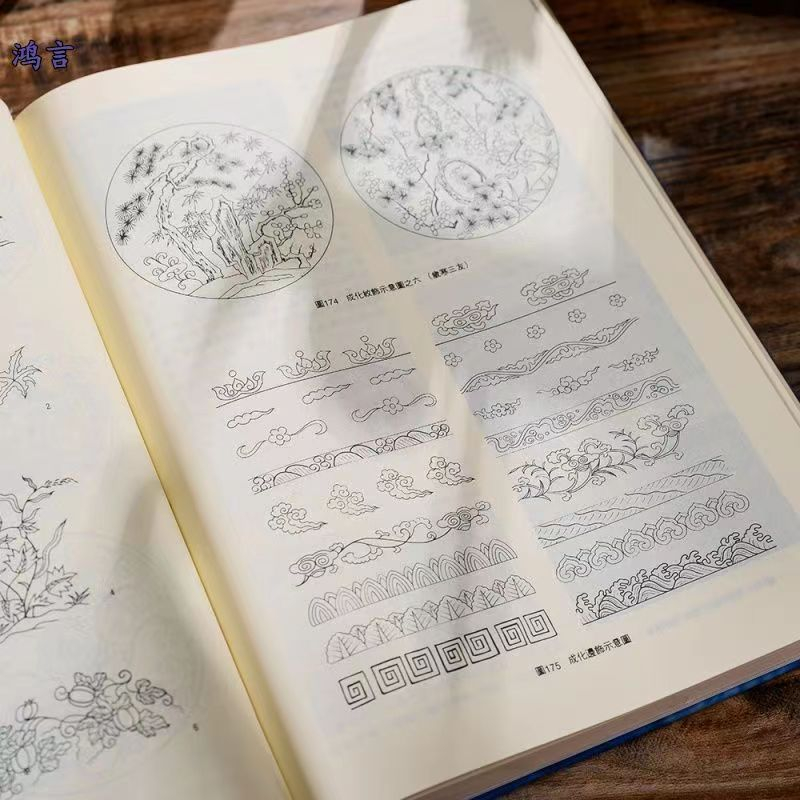 鸿言
2
4
6
圖174 成化紋飾示意圖之六 （歲寒三友）
圖175 成化邊飾示意圖